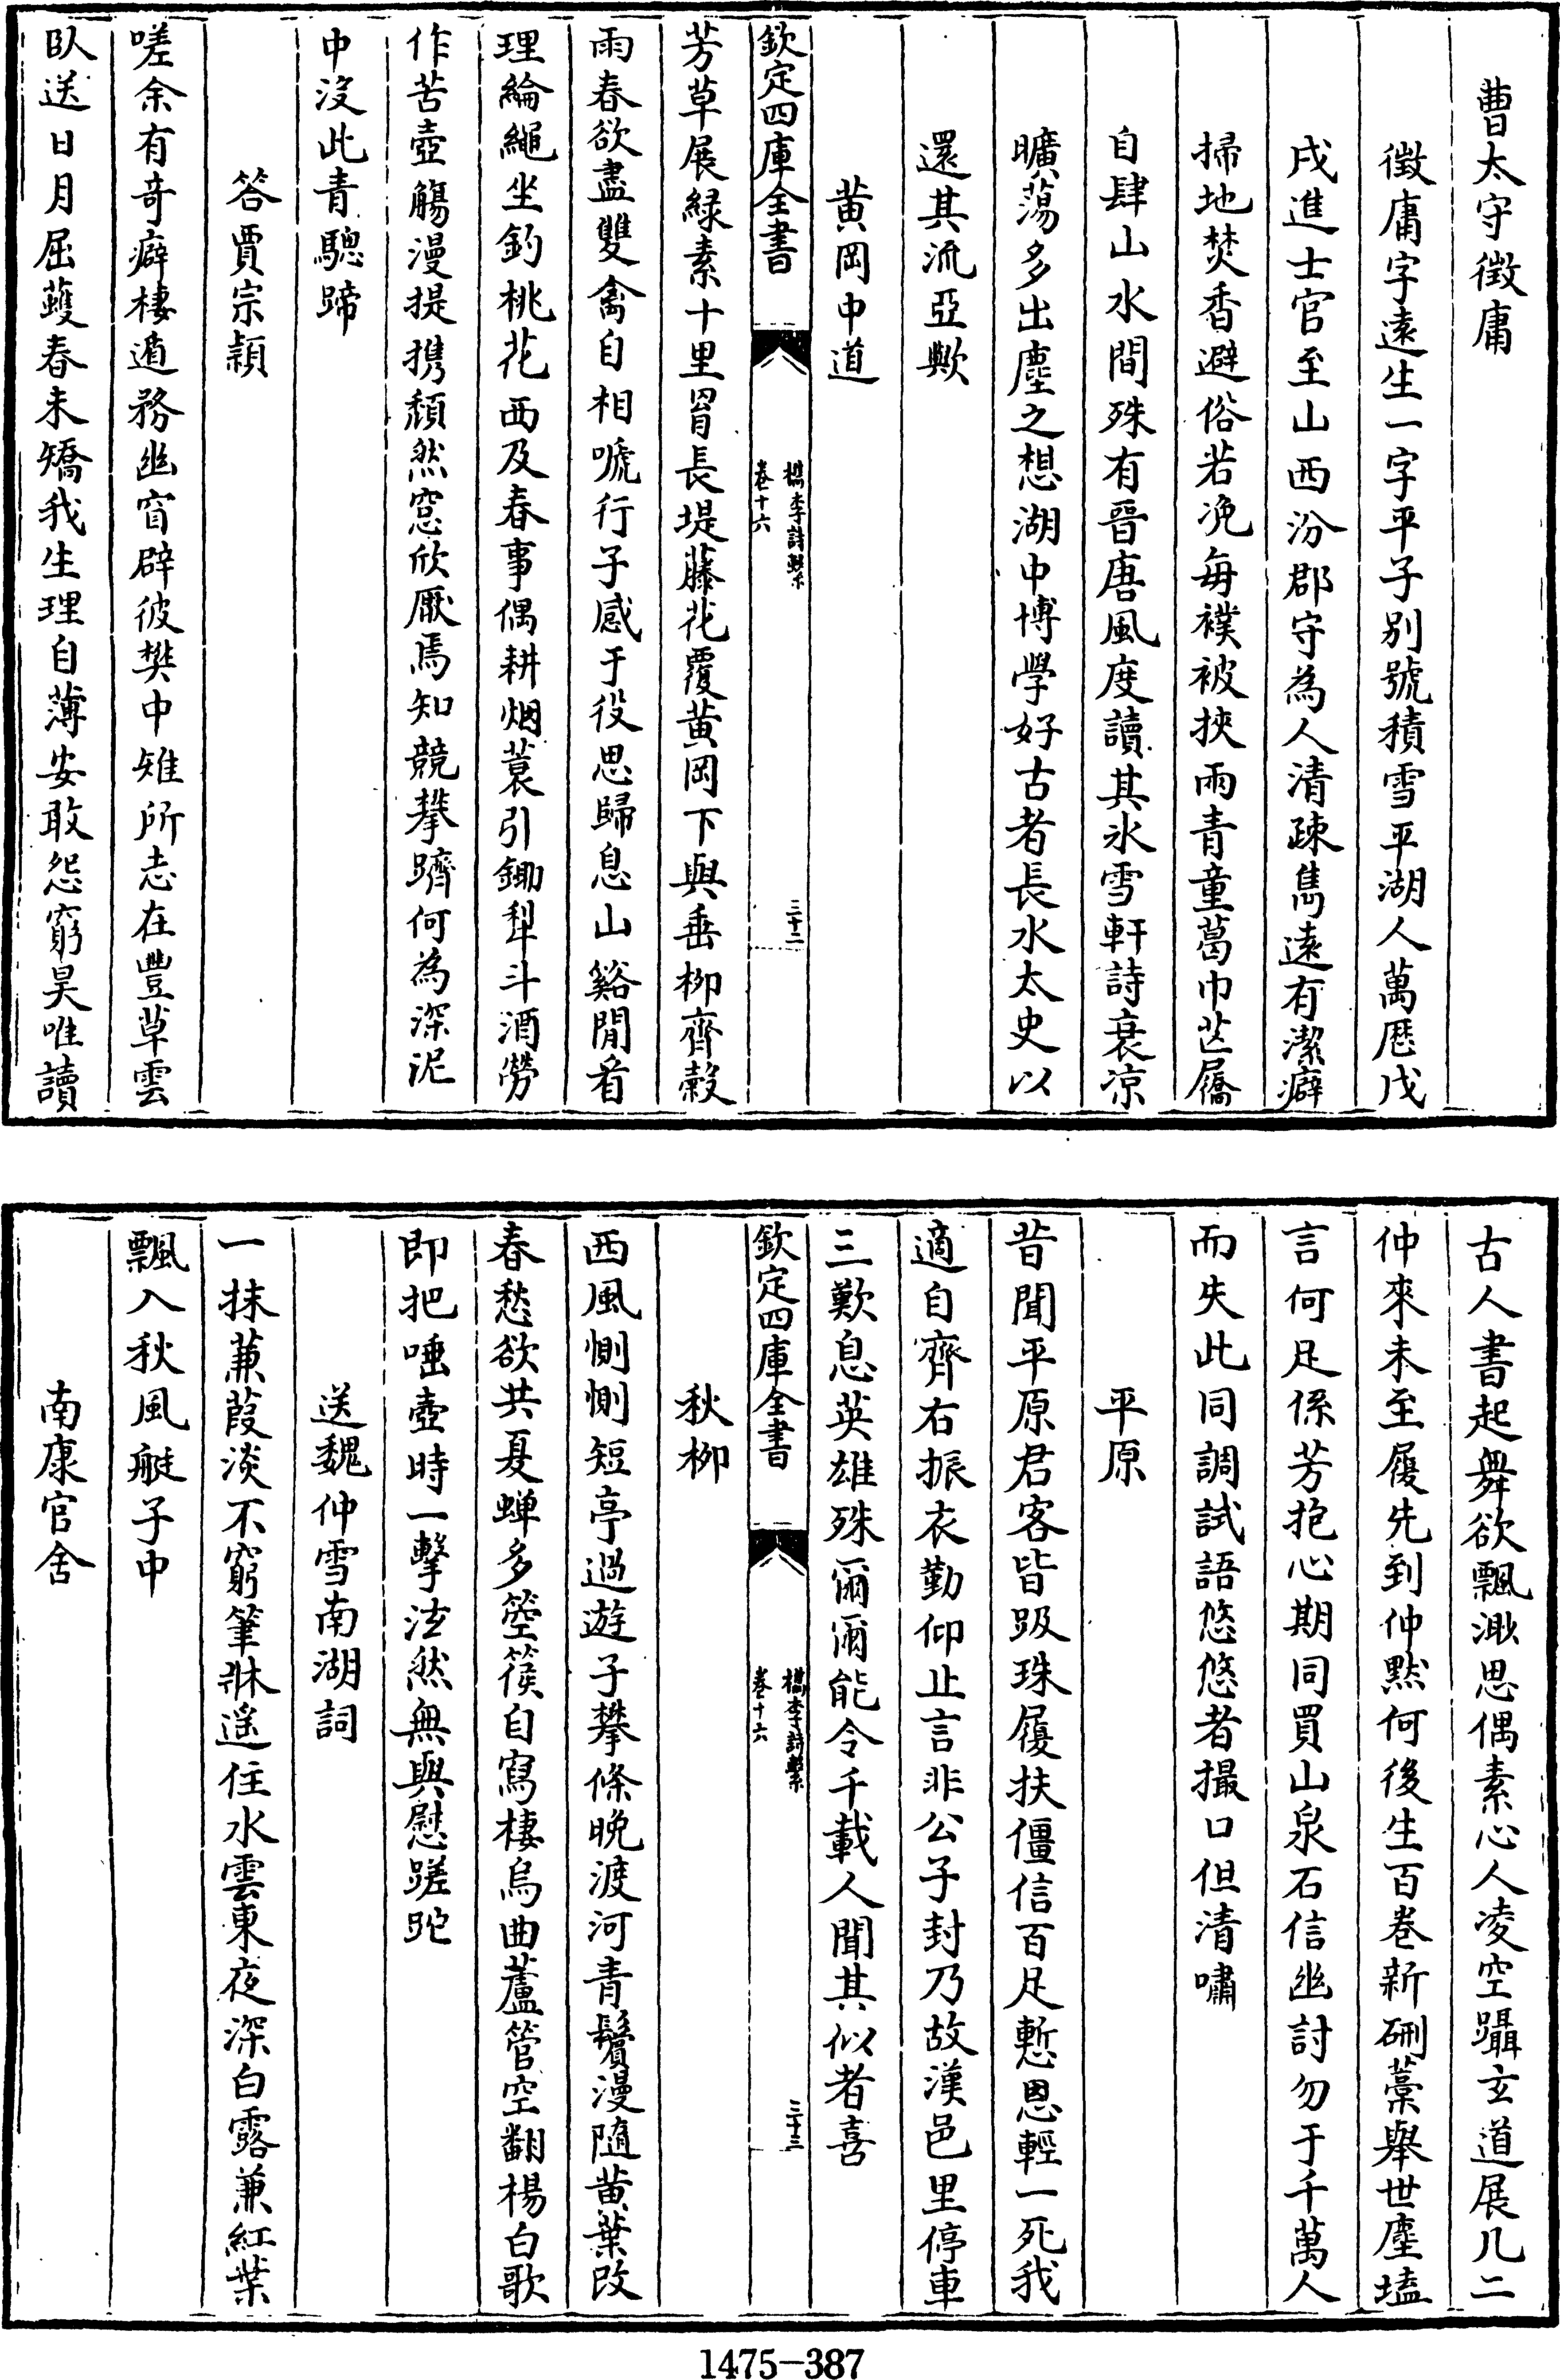 曹太守徵庸
徵庸字遠生一字平子別號積雪平湖人萬厯戊
戌進士官至山西汾郡守為人清疎雋遠有潔癖
掃地焚香避俗若浼每襆被挾兩青童葛巾芒屩
自肆山水間殊有晉唐風度讀其氷雪軒詩衰凉
曠蕩多出塵之想湖中博學好古者長水太史以
還其流亞歟
黄岡中道
欽定四庫全書
檇李詩繫
卷十六
三十二
芳草展緑素十里罥長堤藤花覆黄岡下與垂柳齊穀
雨春欲盡雙禽自相嗁行子感于役思歸息山谿閒看
理綸繩坐釣桃花西及春事偶耕烟蓑引鋤犂斗酒勞
作苦壺觴漫提携頽然窓欣厭焉知競攀躋何為深泥
中没此青驄蹄
答賈宗穎
嗟余有奇癖棲遁務幽窅辟彼樊中雉所志在豐草雲
臥送日月屈蠖春未矯我生理自薄安敢怨窮昊唯讀
古人書起舞欲飄渺思偶素心人凌空躡玄道展几二
仲來未至履先到仲黙何後生百卷新硎藁舉世塵壒
言何足係芳抱心期同買山泉石信幽討勿于千萬人
而失此同調試語悠悠者撮口但清嘯
平原
昔聞平原君客皆趿珠履扶僵信百足慙恩輕一死我
適自齊右振衣勤仰止言非公子封乃故漢邑里停車
三歎息英雄殊爾爾能令千載人聞其似者喜
欽定四庫全書
檇李詩繫
卷十六
三十三
秋柳
西風惻惻短亭過遊子攀條晚渡河青鬢漫隨黄葉改
春愁欲共夏蝉多箜篌自寫棲烏曲蘆管空翻楊白歌
即把唾壺時一擊泫然無與慰蹉跎
送魏仲雪南湖詞
一抹蒹葭淡不窮筆牀遥住水雲東夜深白露蒹紅葉
飄入秋風艇子中
南康官舍
1475-387